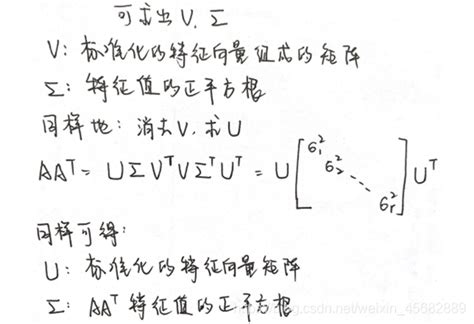 可求出 V, Σ
V: 标准化的特征向量组成的矩阵
Σ: 特征值的正平方根
同样地: 消去V, 求U
AAᵀ = UΣVᵀVΣᵀUᵀ = U [σ₁² σ₂² ⋱ σᵣ²] Uᵀ
同样可得:
U: 标准化的特征向量矩阵
Σ: AAᵀ 特征值的正平方根
https://blog.csdn.net/weixin_45682889